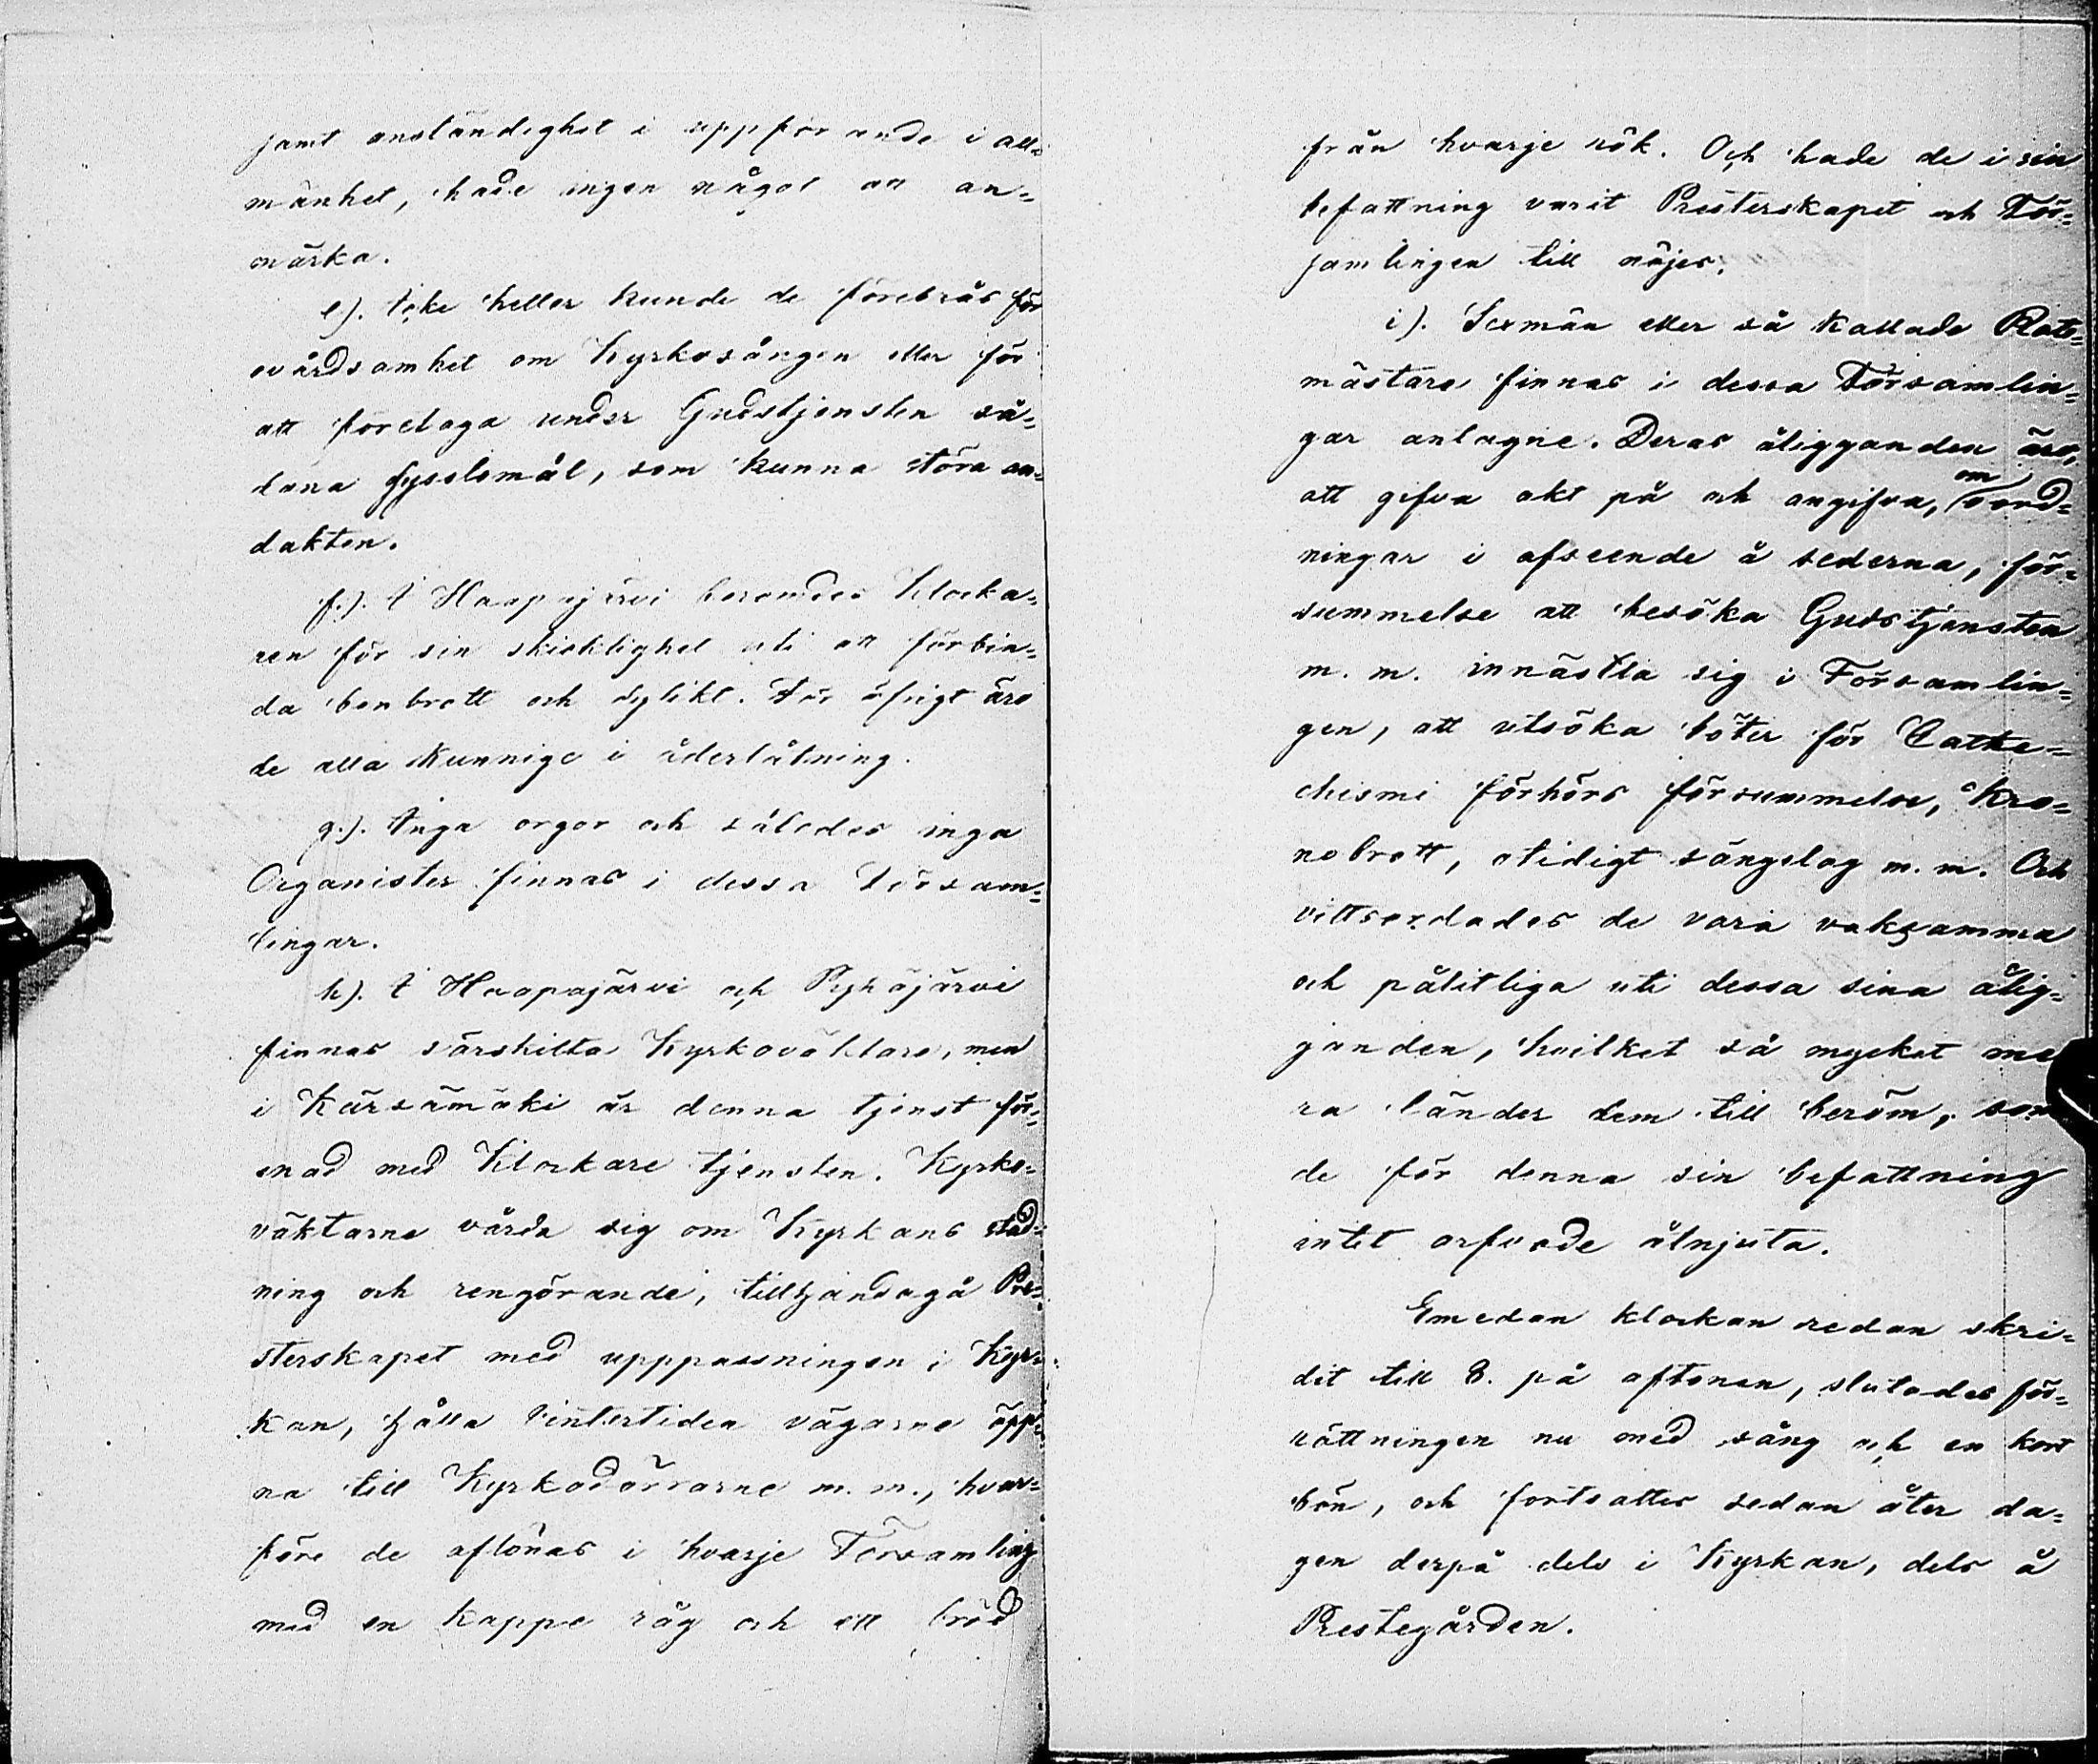 samt anständighet i uppförande i all-
mänhet, hade ingen något att an-
märka.
e). Icke heller kunde de förebrås för
ovårdsamhet om Kyrkosången eller för
att företaga under Gudstjensten så-
dana sysslomål, som kunna störa an-
dakten.
f.). I Haapajärvi berömdes Klocka-
ren för sin skicklighet uti att förbin-
da benbrott och dylikt. För öfrigt äro
de alla kunnige i åderlåtning.
g.). Inga orgor och således inga
Organister finnas i dessa Försam-
lingar.
h). I Haapajärvi och Pyhäjärvi
finnas särskilta Kyrkoväktare, men
i Kärsämäki är denna tjenst för-
enad med Klockare tjensten. Kyrko-
väktarne vårda sig om Kyrkans städ-
ning och rengörande, tillhandagå Pre-
sterskapet med upppassningen i Kyr-
kan, hålla vintertiden vägarne öpp-
na till Kyrkodörrarne m. m., hvar-
före de aflönas i hvarje Församling
med en kappe råg och ett bröd
från hvarje rök. Och hade de i sin
befattning varit Presterskapet och För-
samlingen till nöjes.
i). Sexmän eller så kallade Rote-
mästare finnas i dessa Församlin-
gar antagne. Deras åligganden äro,
att gifva akt på och angifva, om oord-
ningar i afseende å sederna, för-
summelse att besöka Gudstjensten
m. m. innästla sig i Församlin-
gen, att utsöka böter för Cathe-
chismi förhörs försummelse, Kro-
nobrott, otidigt sängelag m. m. Och
vittsordades de vara vaksamma
och pålitliga uti dessa sina ålig-
ganden, hvilket så mycket me
ra länder dem till beröm, som
de för denna sin befattning
intet arfvode åtnjuta.
Emedan klockan redan skri-
dit till 8. på aftonen, slutades för-
rättningen nu med sång och en kort
bön, och fortsattes sedan åter da-
gen derpå dels i Kyrkan, dels å
Prestegården.